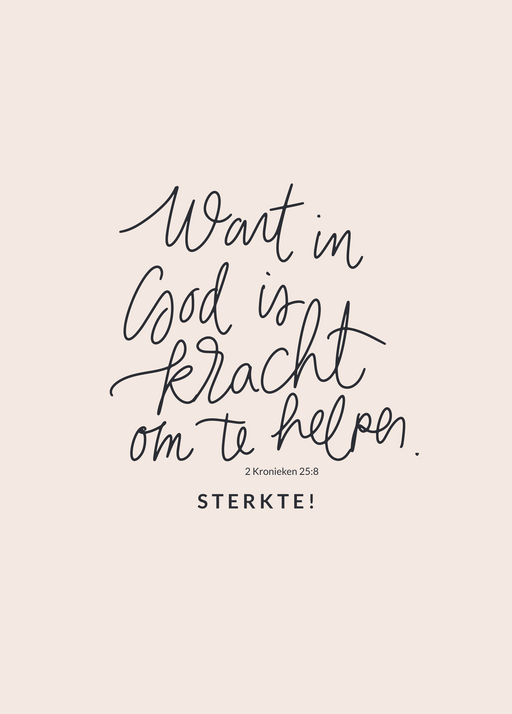 Want in
God is
kracht
om te helpen.
2 Kronieken 25:8
STERKTE!